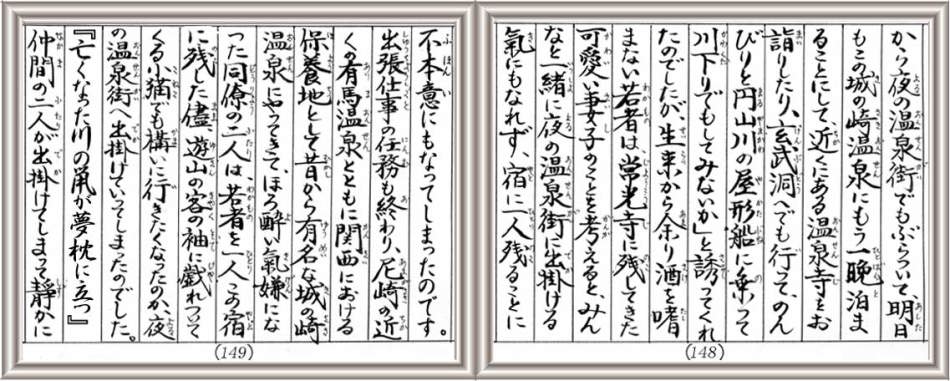 から夜の温泉街でもぶらついて、明日
もこの城の崎温泉にもう一晩泊ま
ることにして、近くにある温泉寺をお
詣りしたり、玄武洞へでも行って、のん
びりと円山川の屋形船に乗って
川下りでもしてみないか」と誘ってくれ
たのでしたが、生来から余り酒を嗜
まない若者は、常光寺に残してきた
可愛い妻女子のことを考えると、みん
なと一緒に夜の温泉街に出掛ける
氣にもなれず、宿に一人残ることに
(148)
不本意にもなってしまったのです。
出張仕事の任務も終わり、尼崎の近
くの有馬温泉とともに関西における
保養地として昔から有名な城の崎
温泉にやってきて、ほろ酔い氣嫌にな
った同僚の二人は、若者を一人この宿
に残した儘、遊山の客の袖に戯れつて
くる小猫でも構いに行きたくなったのか、夜
の温泉街へ出掛けていってしまったのでした。
『亡くなった川の凧が夢枕に立つ』
仲間の二人が出掛けてしまって、静かに
(149)